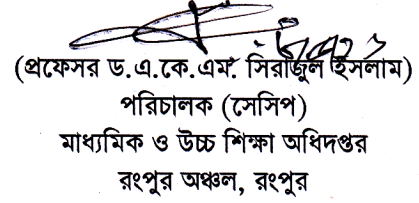 (প্রফেসর ড.এ.কে.এম. সিরাজুল ইসলাম)
পরিচালক (সেসিপ)
মাধ্যমিক ও উচ্চ শিক্ষা অধিদপ্তর
রংপুর অঞ্চল, রংপুর